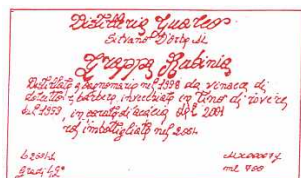 Distilleria Gualco
Silvano D'Orba Al
Grappa Rabinia
Distillato a bagnomaria nel 1998 da vinacce di
dolcetto e barbera, invecchiato in Tino di rovere
dal 1999, in caratodi acacia dal 2001
ed imbottigliato nel 2004
L. 2004
gradi 42°
ml 700